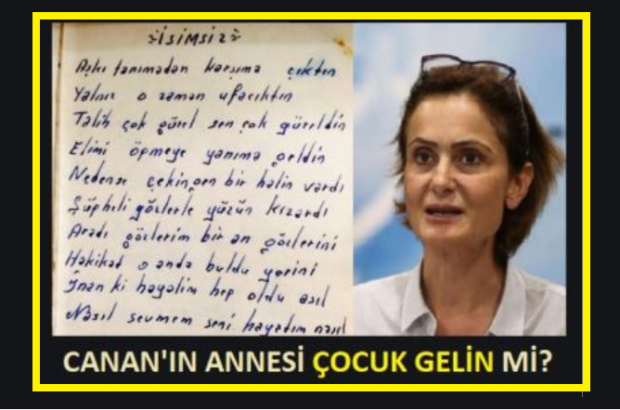 İSİMSİZ
Aşkı tanımadan karşıma çıktın
Yalnız o zaman ufacıktın
Talih çok güzel sen çok güzeldin
Elimi öpmeye yanıma geldin
Nedense çekingen bir halin vardı
Şüpheli gözlerle yüzün kızardı
Aradı gözlerim bir an gözlerini
Hakikad o anda buldu yerini
İnan ki hayalim hep oldu asıl
Nasıl sevmem seni hayatım nasıl
CANAN'IN ANNESİ ÇOCUK GELİN Mİ?